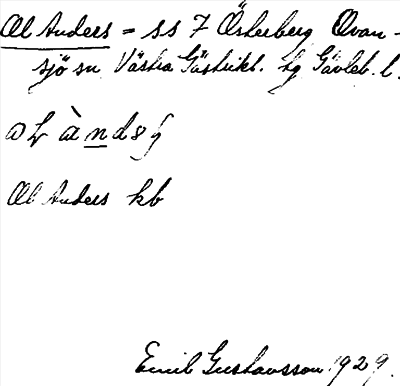 Ol Anders = ss 7 Österberg Ovan-
sjö sn Västra Gästrikl. hg Gävleb. l.
Ol Anders kb
Emil Gustavsson 1929.